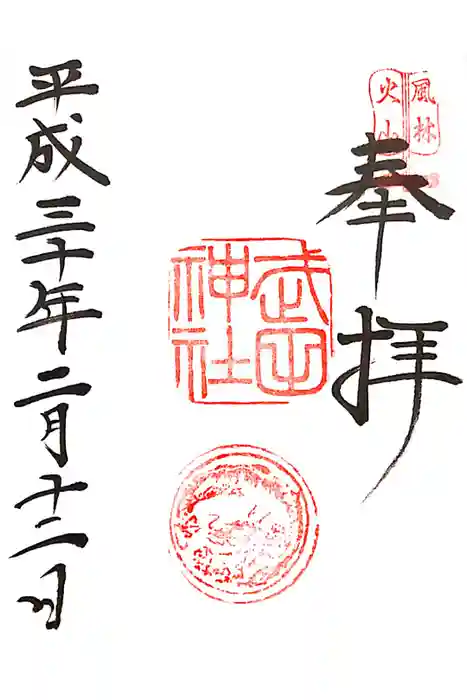 風林
火山
奉拝
武田
神社
平成三十年二月十二日